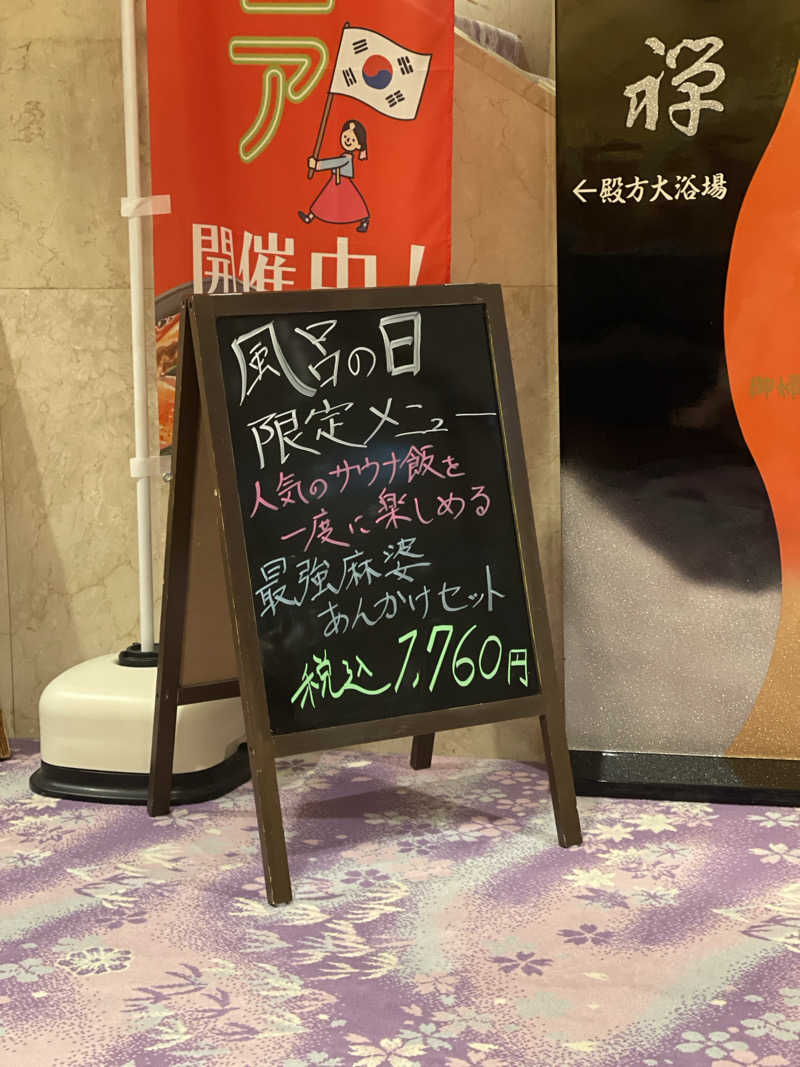 ア
開催中!
禅
←殿方大浴場
風呂の日
限定メニュー
人気のサウナ飯を
一度に楽しめる
最強麻婆
あんかけセット
税込1,760円